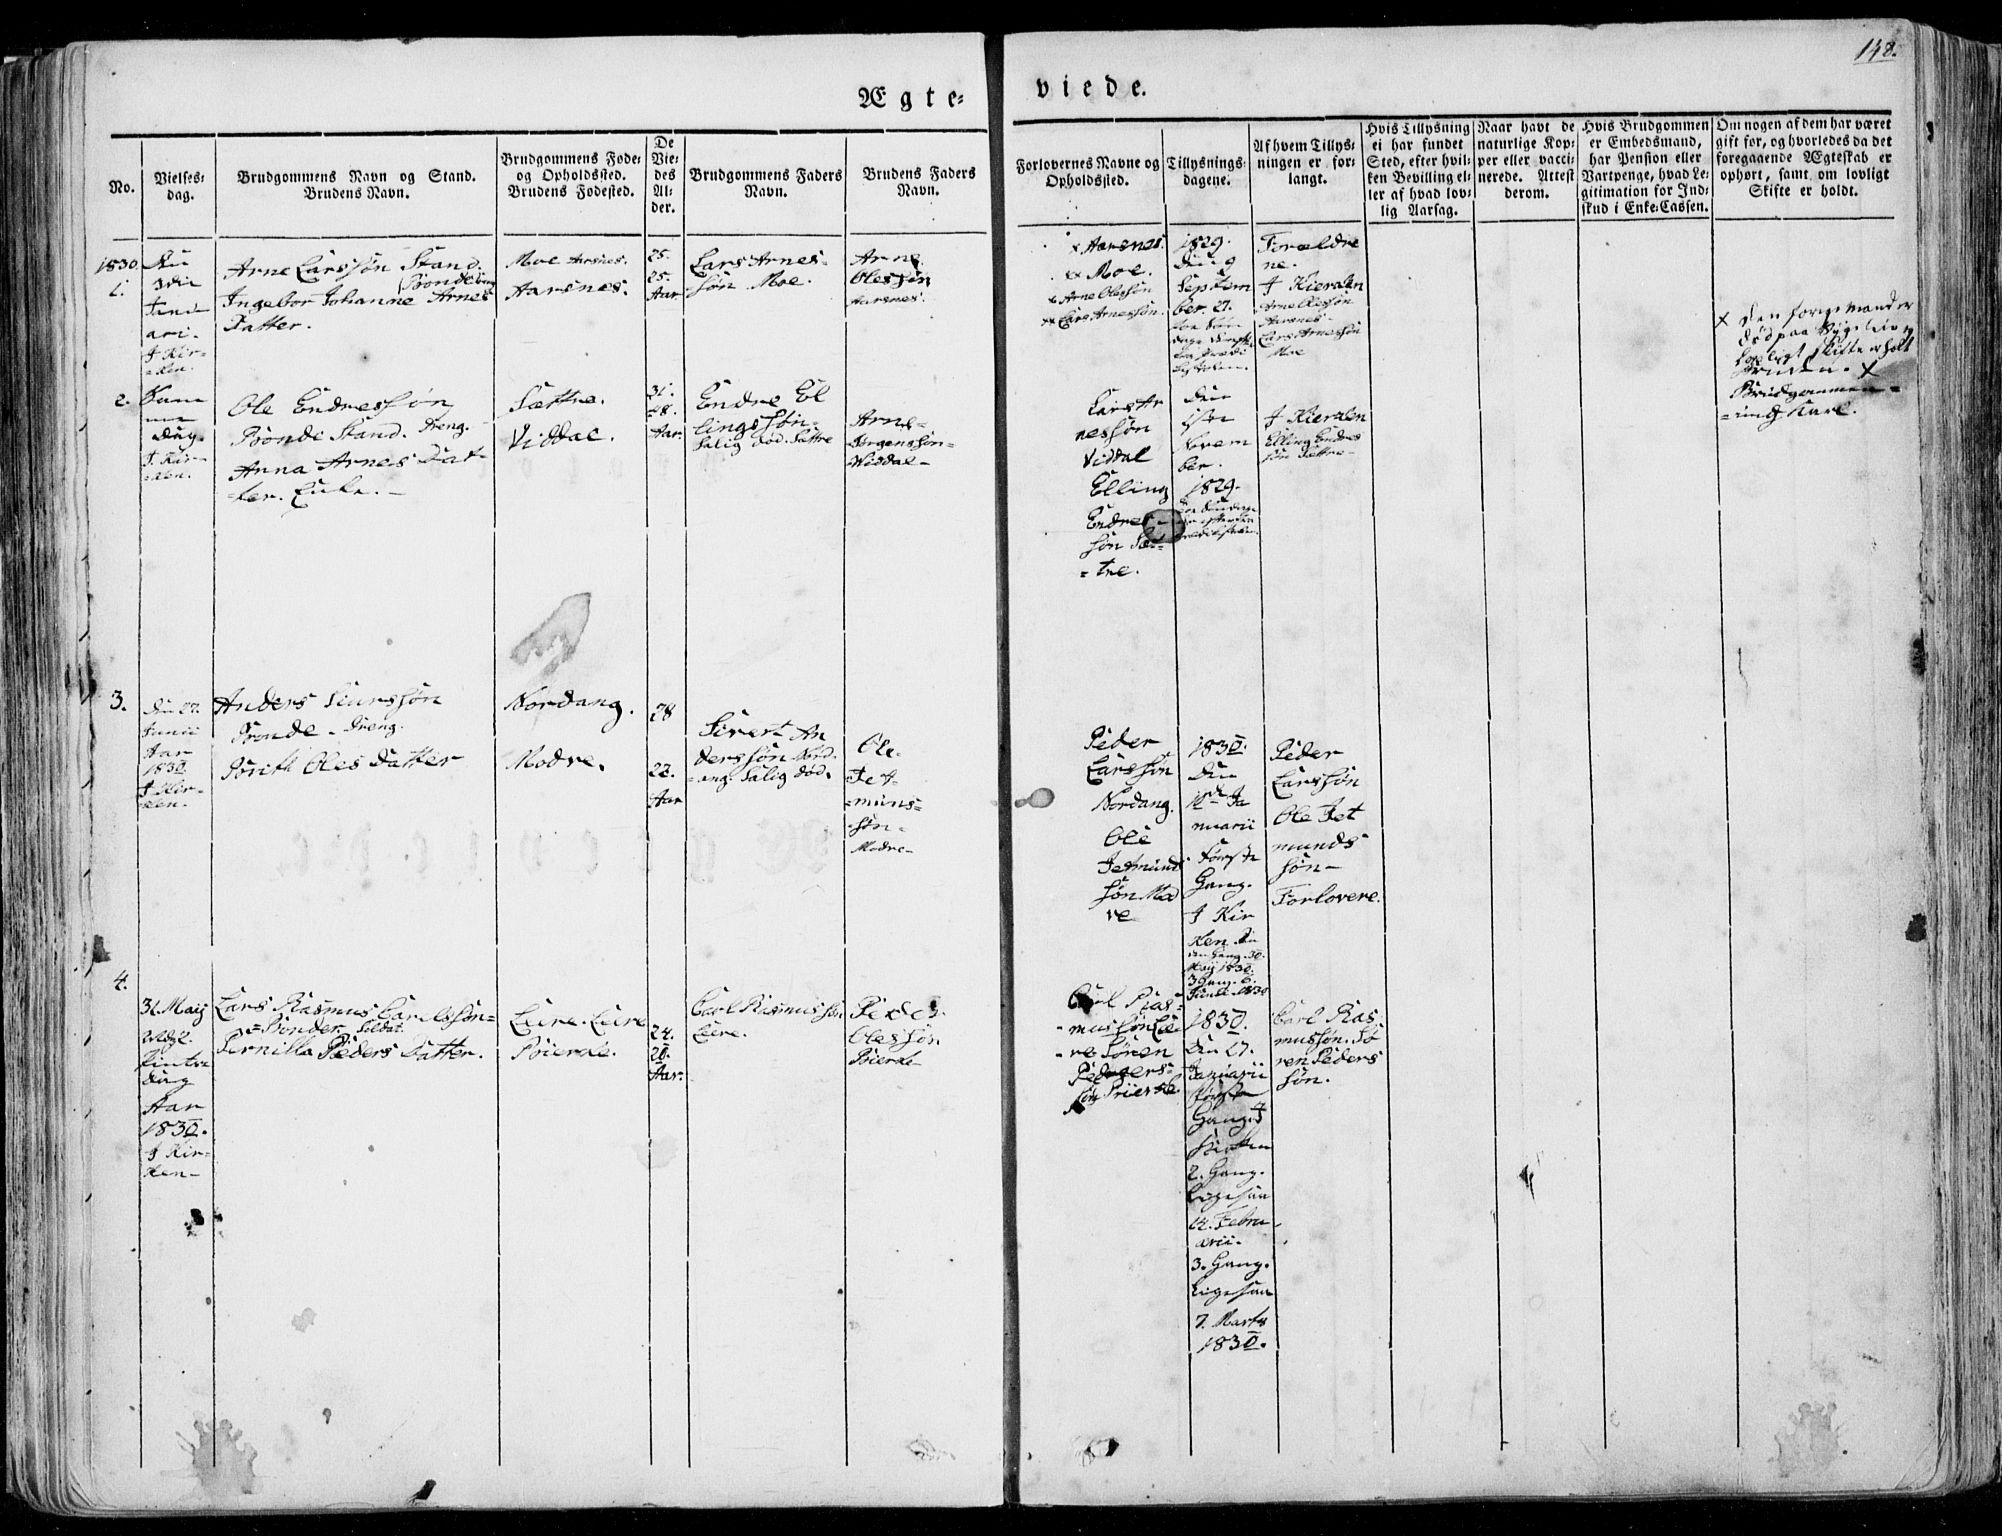 148.
Ægte=
viede.
No.
Vielses=
dag.
Brudgommens Navn og Stand.
Brudens Navn.
Brudgommens Føde=
og Opholdssted.
Brudens Fødested.
De
Vie=
des
Al=
der.
Brudgommens Faders
Navn.
Brudens Faders
Navn.
Forlovernes Navne og
Opholdssted.
Tillysnings=
dagene.
Af hvem Tillys=
ningen er for=
langt.
Hvis Tillysning
ei har fundet
Sted, efter hvil=
ken Bevilling el=
ler af hvad lov=
lig Aarsag.
Naar havt de
naturlige Kop=
per eller vacci=
nerede. Attest
derom.
Hvis Brudgommen
er Embedsmand,
har Pension eller
Vartpenge, hvad Le=
gitimation for Ind=
skud i Enke=Cassen.
Om nogen af dem har været
gift før, og hvorledes da det
foregaaende Ægteskab er
ophørt, samt om lovligt
Skifte er holdt.
1830.
1.
Janu
arii.
I Kir=
ken.
Arne Larssøn Stand.
Bonde
Ingebor Johanne Arnes
Datter.
Moe Aarsnes.
Aarsnes.
25.
25.
Aar
Lars Arnes=
søn Moe.
Arne
Olessøn
Aarsnes.
x Aarsnes.
xx Moe.
x Arne Olessøn
xx Lars Arnessøn.
1829.
Septem
ber. 27.
Forældre
ne.
I Kierken
Arne Olessøn
Aarsnes
Lars Arnessøn
Moe
x Den forige Mand er
død paa
Skifte er holt
x
Brudgommen=
=ung Karl.
2.
Samme
Dag.
I Kir=
=ken.
Ole Endressøn
Bonde Stand. Dreng.
Anna Arnes Dat
=ter. Enke. -
Sættre.
Viddal.
31.
28.
Aar.
Endre El
lingssøn-
Salig død. Sættre
Arne=
Jørgenssøn=
Widdal-
Lars Ar
nessøn
Viddal
Elling
Endres=
søn Sæt=
=tre.
Den
1ste
ber.
1829.
I Kierken
Elling Endres
søn Sættre-
3.
Den 27.
Junii
Aar
1830.
I Kir=
ken.
Anders Siurssøn
Bonde- Dreng.
Børith Oles Datter
Nordang.
Modre.
28
22.
Aar
Sivert An
derssøn Nord
=ang. Salig død.
Ole.
Jet=
=muns=
søn=
Modre-
Peder
Larssøn
Nordang.
Ole
Jetmunds
søn Mod
re
1830.
Den
Ja
nuarii
Første
Gang.
I Kir
ken.
den Gang. 30.
Maij 1830.
3 Gang. 6.
Junii 1830
Peder
Larssøn
Ole Jet
munds
søn-
Forlovere.
4.
31. Maij
Pintse
Dag
Aar
1830.
I Kir=
ken-
Lars Rasmus Carlssøn=
=Bonder. Soldat.
Pernilla Peders Datter.
Leire. Leire
Bøierde.
24.
20.
Aar.
Carl Rasmussøn
Leire.
Peder
Olessøn
Bøierde
Carl Ras=
=mussøn Lei
=re Søren
Peders=
søn Bøierde.
1830.
Den 27.
Januarii
Første
Gang. I
Kirken
2. Gang.
Ligesaa
14. Febru
arii.
3. Gang.
Ligesaa
7. Marts
1830.
Carl Ras
mussøn. Sø
ren Peders
søn.